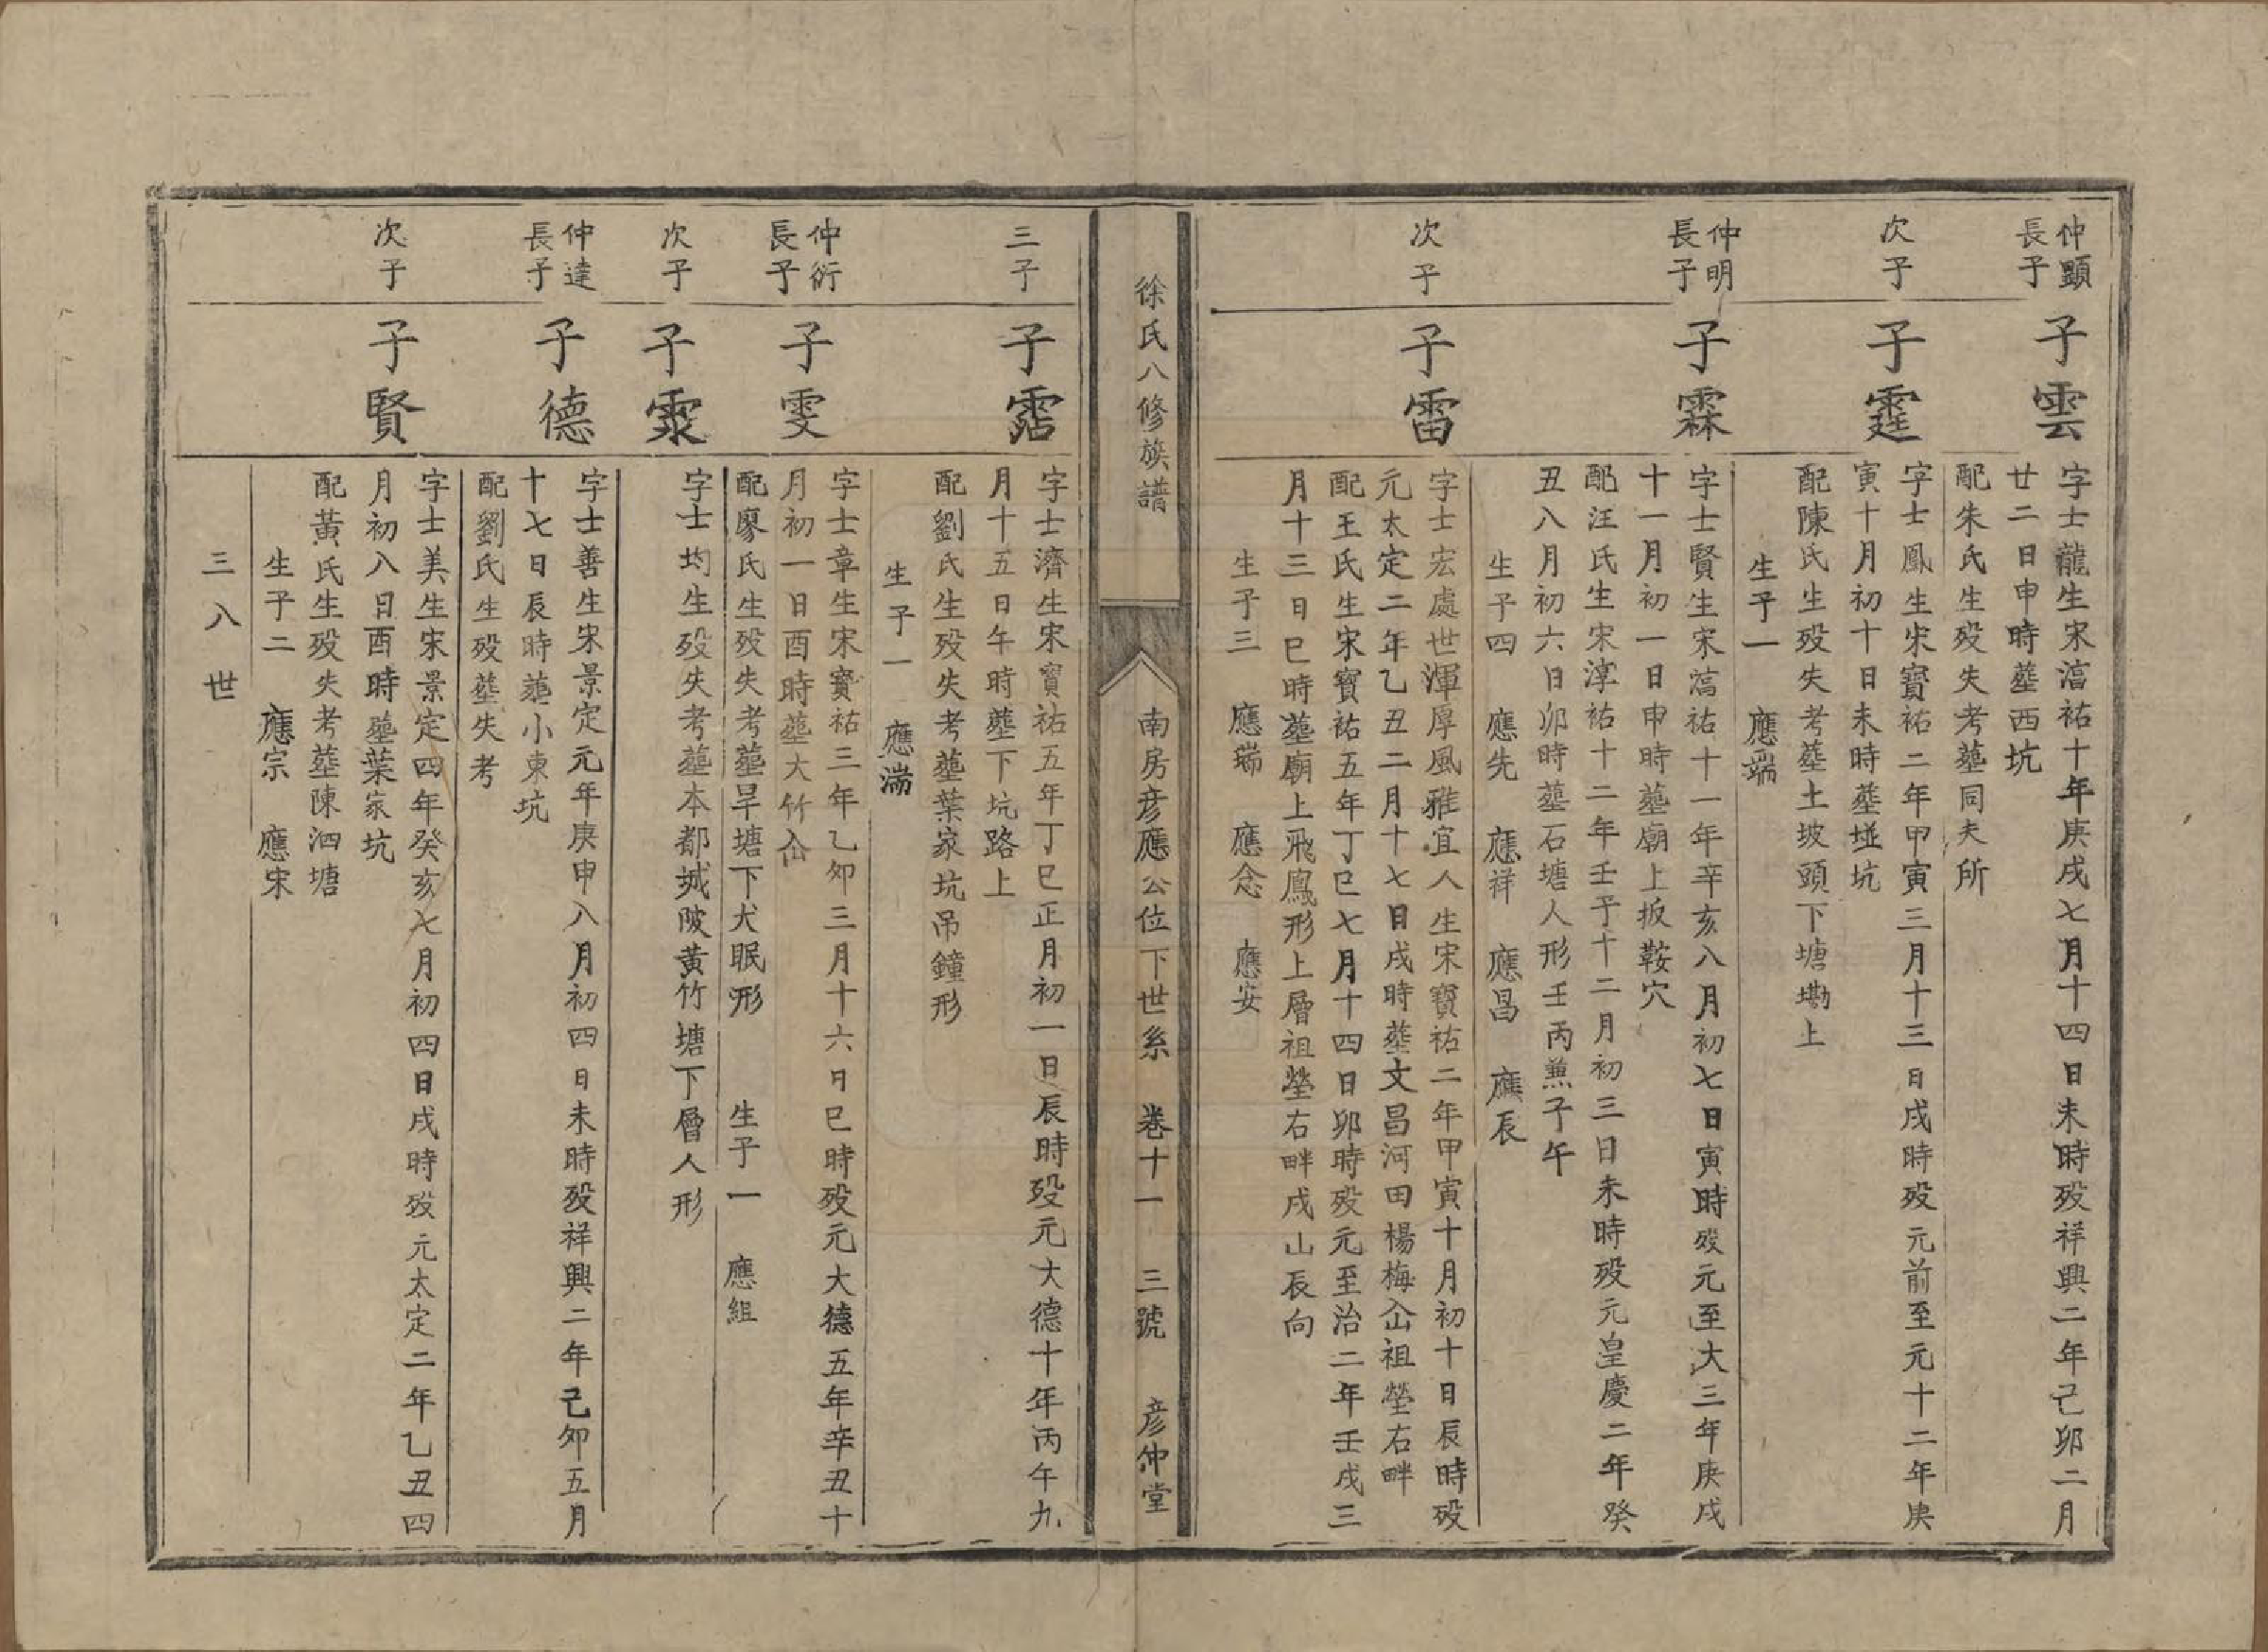 仲顯長子
子雲
字士龍生宋淯祐十年庚戌七月十四日未時歿祥興二年己卯二月
廿二日申時塟西坑
配朱氏生歿失考塟同夫所
次子
子霆
字士鳳生宋寶祐二年甲寅三月十三日戌時歿元前至元十二年庚
寅十月初十日未時塟㙍坑
配陳氏生歿失考塟土坡頭下塘墈上
生子一 應端
仲明長子
子霖
字士賢生宋淯祐十一年辛亥八月初七日寅時歿元至大三年庚戌
十一月初一日申時塟廟上扳鞍穴
配汪氏生宋淳祐十二年壬子十二月初三日未時歿元皇慶二年癸
丑八月初六日卯時塟石塘人形壬丙兼子午
生子四 應先 應祥 應昌 應辰
次子
子雷
字士宏處世渾厚風雅宜人生宋寶祐二年甲寅十月初十日辰時歿
元太定二年乙丑二月十七日戌時塟文昌河田楊梅仚祖塋右畔
配王氏生宋寶祐五年丁巳七月十四日卯時歿元至治二年壬戌三
月十三日巳時塟廟上飛鳳形上層祖塋右畔戌山辰向
生子三 應瑞 應念 應安
徐氏八修族譜 南房彦應公位下世系 卷十一 三號 彦仲堂
三子
子霑
字士濟生宋寶祐五年丁巳正月初一日辰時歿元大德十年丙午九
月十五日午時塟下坑路上
配劉氏生歿失考塟葉家坑吊鐘形
生子一 應湍
仲衍長子
子雯
字士章生宋寶祐三年乙卯三月十六日巳時歿元大德五年辛丑十
月初一日酉時塟大竹仚
配廖氏生歿失考塟旱塘下犬眠形 生子一 應組
次子
子霥
字士均生歿失考塟本都城陂黃竹塘下層人形
仲達長子
子德
字士善生宋景定元年庚申八月初四日未時歿祥興二年己卯五月
十七日辰時塟小東坑
配劉氏生歿塟失考
次子
子賢
字士美生宋景定四年癸亥七月初四日戌時歿元太定二年乙丑四
月初八日酉時塟葉家坑
配黃氏生歿失考塟陳泗塘
生子二 應宗 應宋
三八世